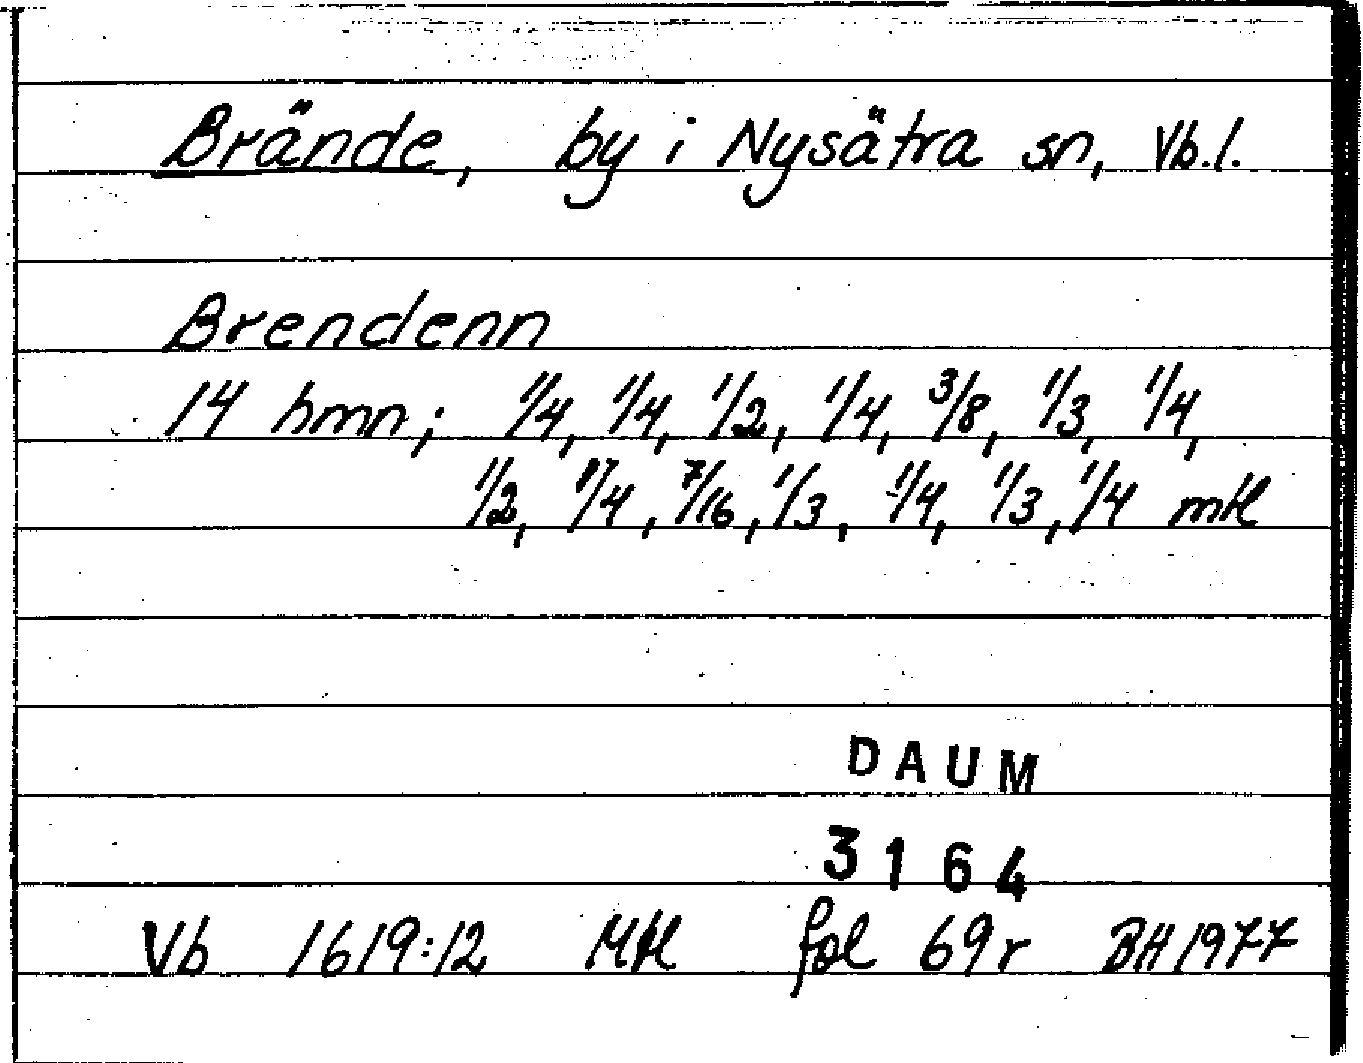 Brände, by i Nysätra sn, Vb.l.
Brendenn
14 hmn; 1/4, 1/4, 1/2, 1/4, 3/8, 1/3, 1/4,
1/2, 1/4, 7/16, 1/3, 1/4, 1/3, 1/4 mtl
DAUM
3164
Vb 1619:12 Mtl fol 69r BH 1977